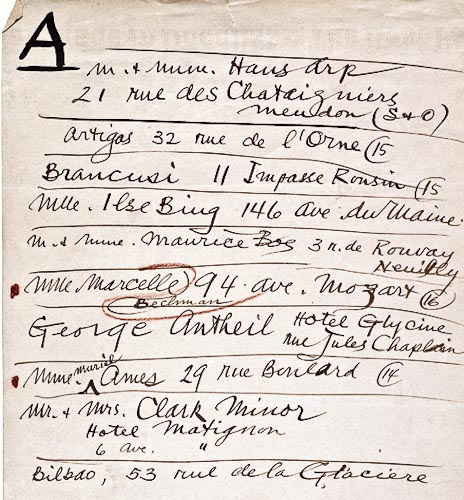 A
M. & Mme. Hans Arp
21 rue des Chataigniers
Meudon (S & O)
Artigas 32 rue de l'Orne (15
Brancusi 11 Impasse Ronsin (15
Mlle. Ilse Bing 146 Ave. du Maine.
M. & Mme. Maurice 3 r. de Rouvay
Neuilly
Mlle Marcelle 94 ave. Mozart (16)
Bechman
George Antheil Hotel Glycine
rue Jules Chaplain
Mme. Muriel Ames 29 rue Boulard (14
Mr. & Mrs. Clark Minor
Hotel Matignon
6 Ave. "
Bilbao, 53 rue de la Glaciere